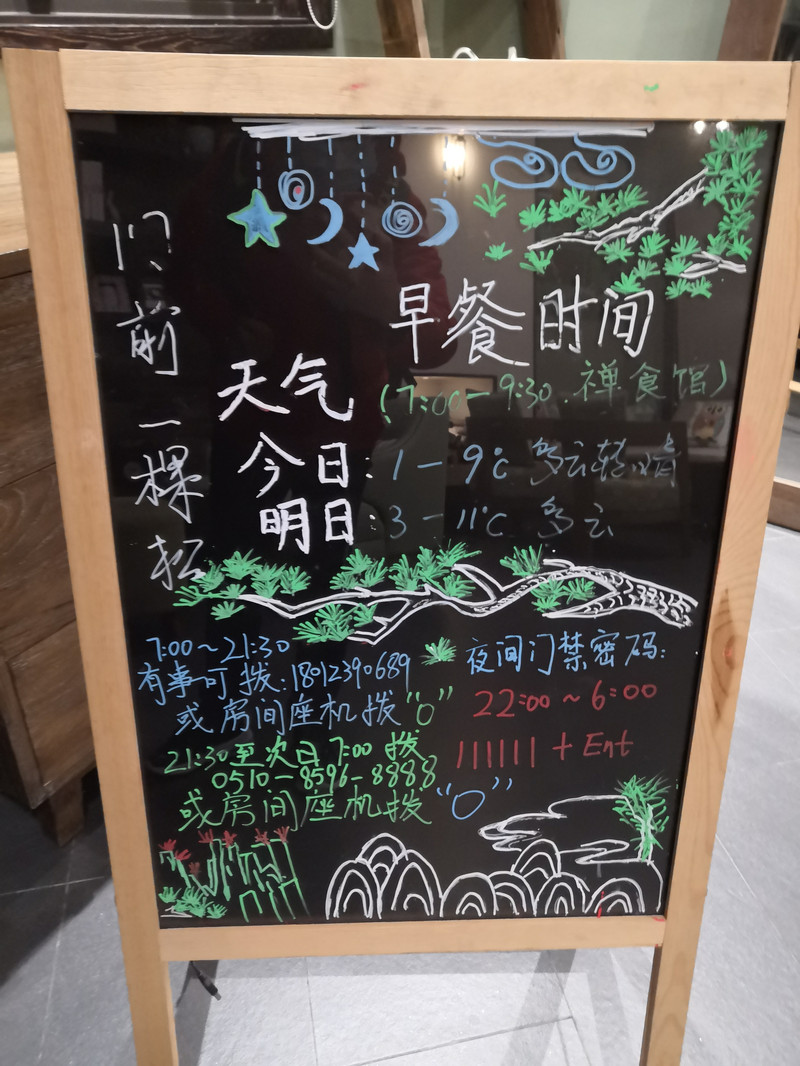 门前一棵松
早餐时间
(7:00-9:30 禅食馆)
天气
今日:1-9℃ 多云转晴
明日:3-11℃ 多云
7:00~21:30
有事可拨:18012390689
或房间座机拨"0"
21:30至次日7:00 拨
0510-8596-8888
或房间座机拨"0"
夜间门禁密码:
22:00~6:00
111111+Ent